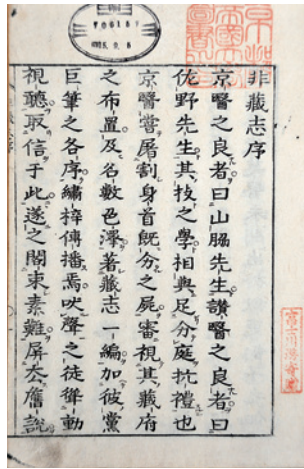 非藏志序
京醫之良者曰山脇先生讃醫之良者曰
佐野先生其技之學相與足分庭抗禮也
京醫嘗屠割身首既分之屍審視其藏府
之布置及名數色澤著藏志一編加彼黨
巨筆之各序繡梓傳播焉吠聲之徒聳動
視聽取信于此遂之閣束素難屏去舊說